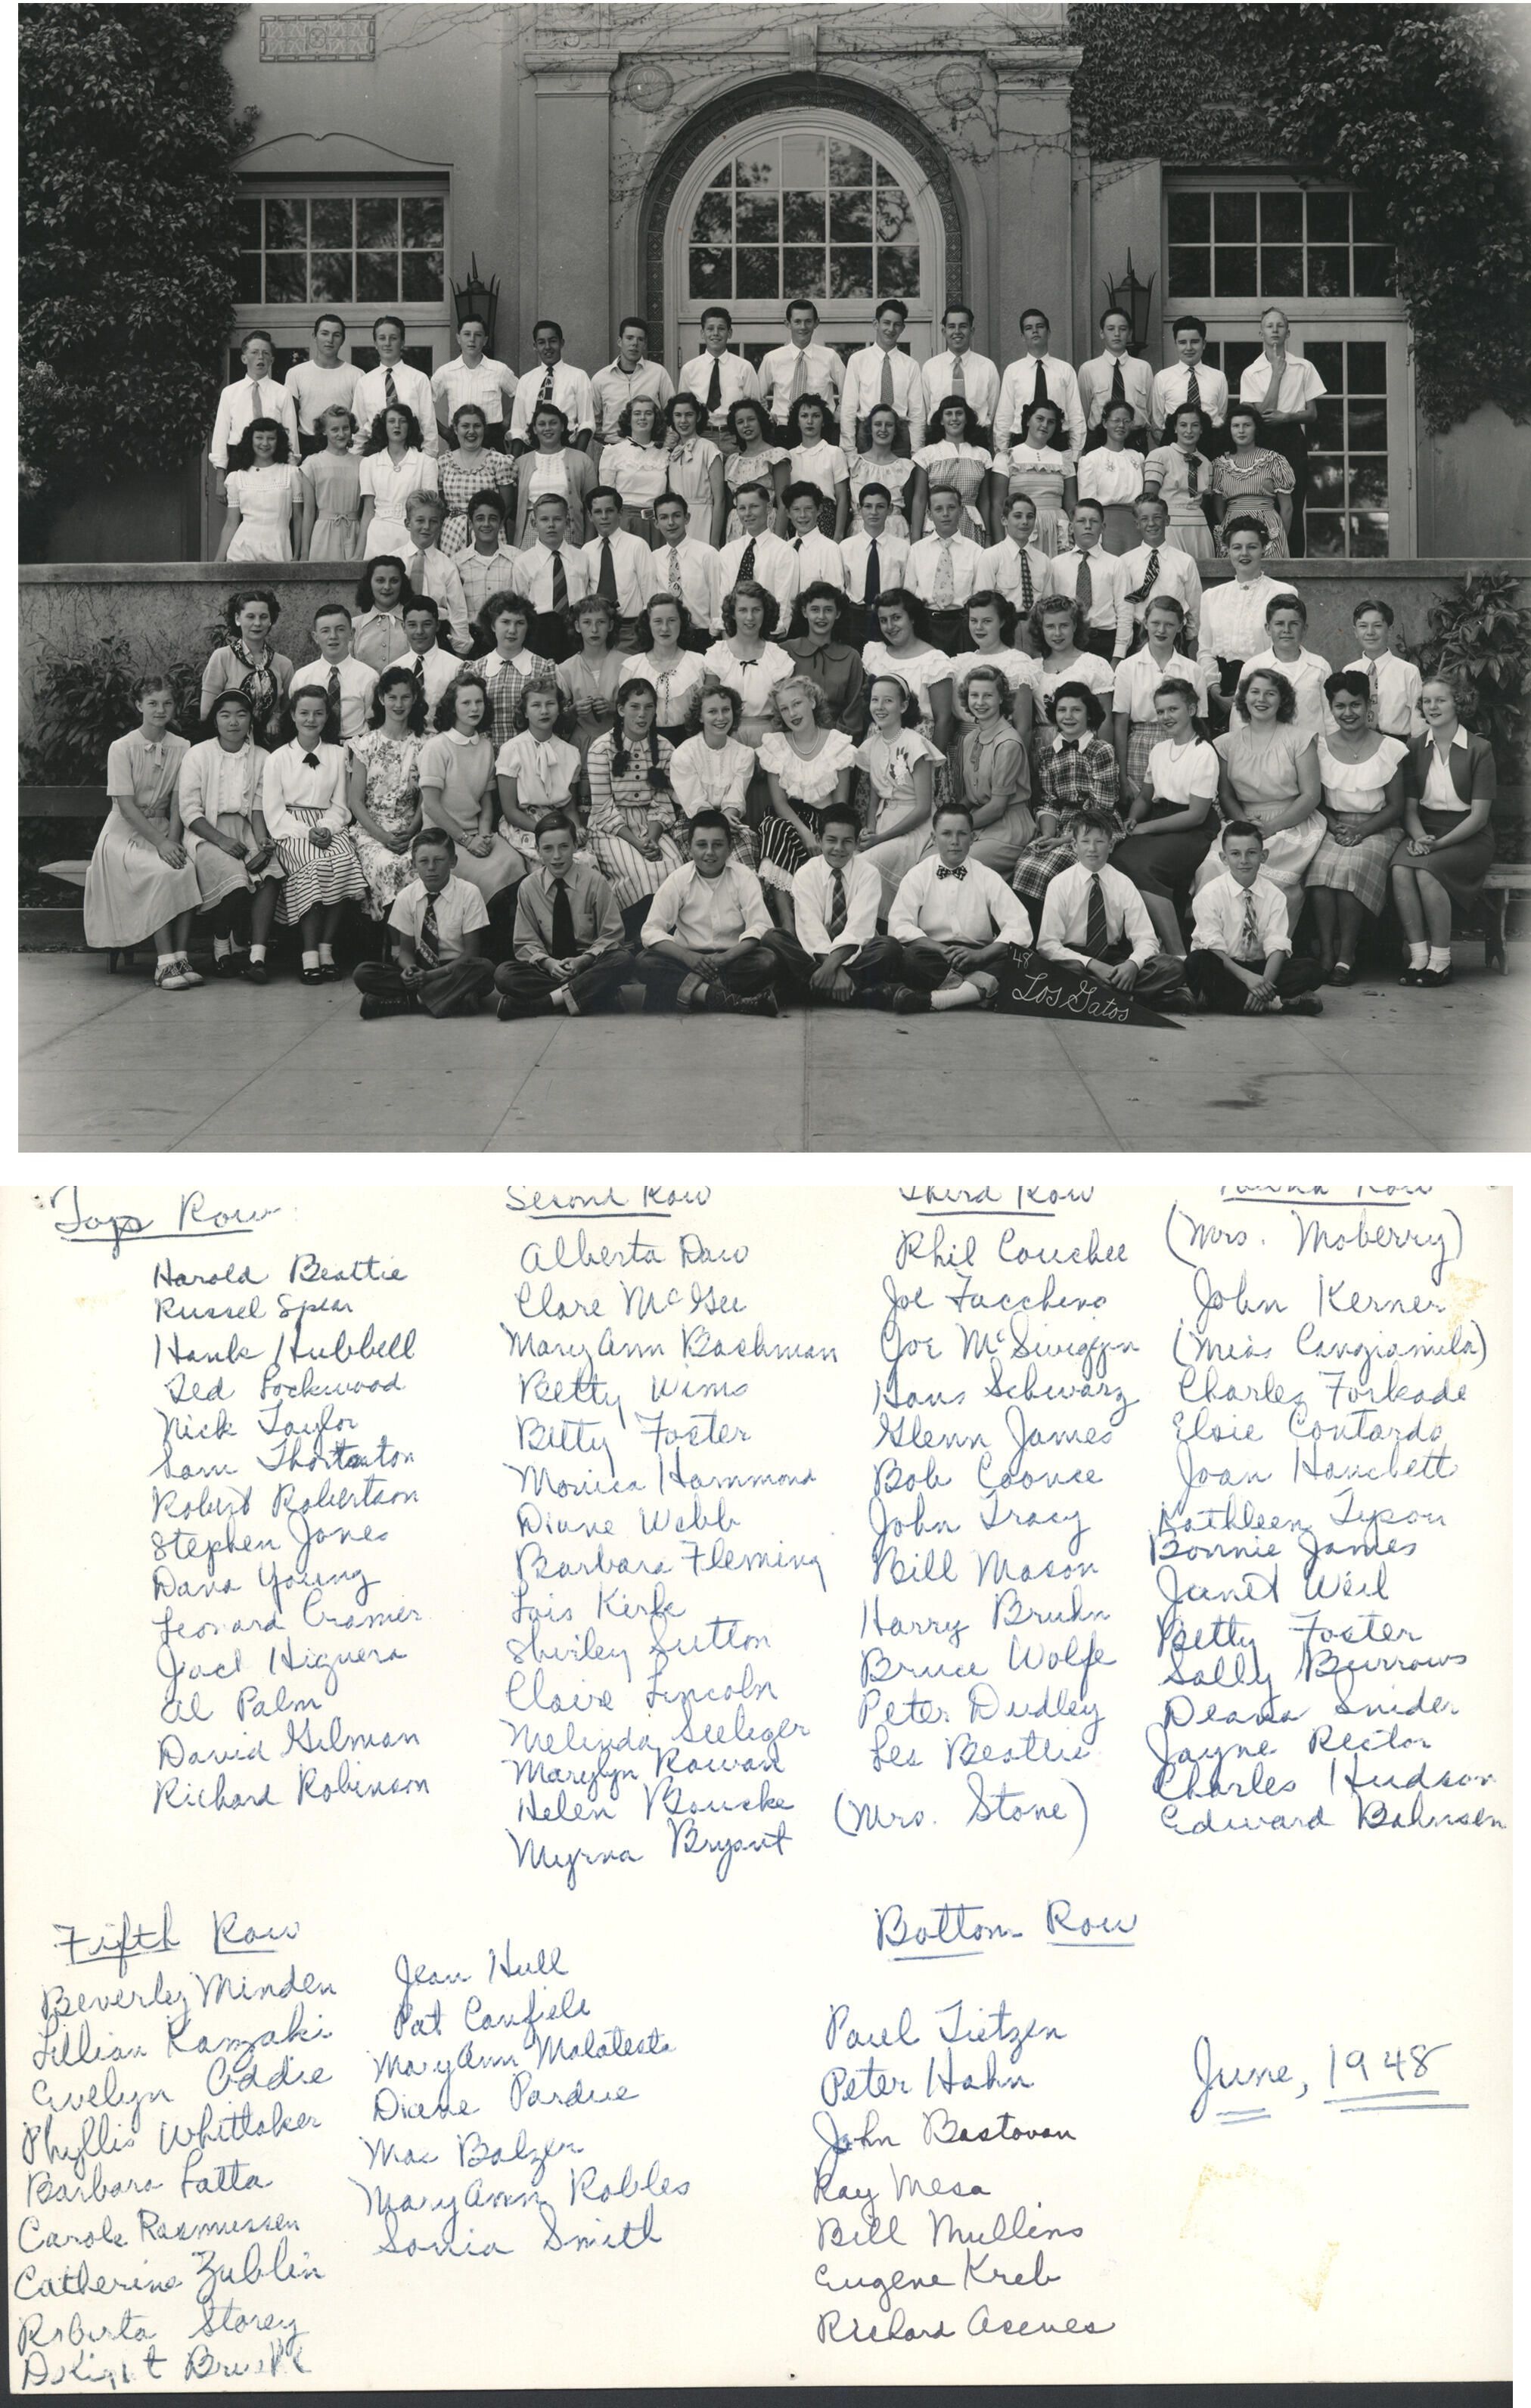 '48
Los Gatos
Top Row
Harold Beattie
Russel Spear
Hank Hubbell
Ted Lockwood
Nick Taylor
Sam
Robert Robertson
Stephen Jones
Dana Young
Leonard Cramer
Jack Higuera
Al Palm
David Gilman
Richard Robinson
Second Row
Alberta Daw
Clare McGee
MaryAnn Bachman
Betty Wims
Betty Foster
Monica Hammond
Diane Webb
Barbara Fleming
Lois Kirk
Shirley Sutton
Claire Lincoln
Melinda Seeliger
Marylyn Rowan
Helen Bouske
Myrna Bryant
Third Row
Phil Couchee
Joe Facchino
Joe McSwiggin
Hans Schwarz
Glenn James
Bob Coonce
John Tracy
Bill Mason
Harry Bruhn
Bruce Wolfe
Peter Dudley
Les Beattie
(Mrs. Stone)
Row
(Mrs. Moberry)
John Kerner
(Miss Cangiamila)
Charles Forkade
Elsie Contardo
Joan Hanchett
Kathleen Tyson
Bonnie James
Janet Weil
Betty Foster
Sally Burrows
Deana Snider
Jayne Rector
Charles Hudson
Edward Bahnsen
Fifth Row
Beverley Minden
Lillian Kanzaki
Evelyn Oddie
Phyllis Whittaker
Barbara Latta
Carole Rasmussen
Catherine Zublin
Roberta Storey
Jean Hull
Pat Canfield
MaryAnn Malatesta
Diane Pardue
Mae Balzer
MaryAnn Robles
Sonia Smith
Bottom Row
Paul Tietzen
Peter Hahn
John Bastovan
Ray Mesa
Bill Mullins
Eugene Kreb
Richard Aceves
June, 1948